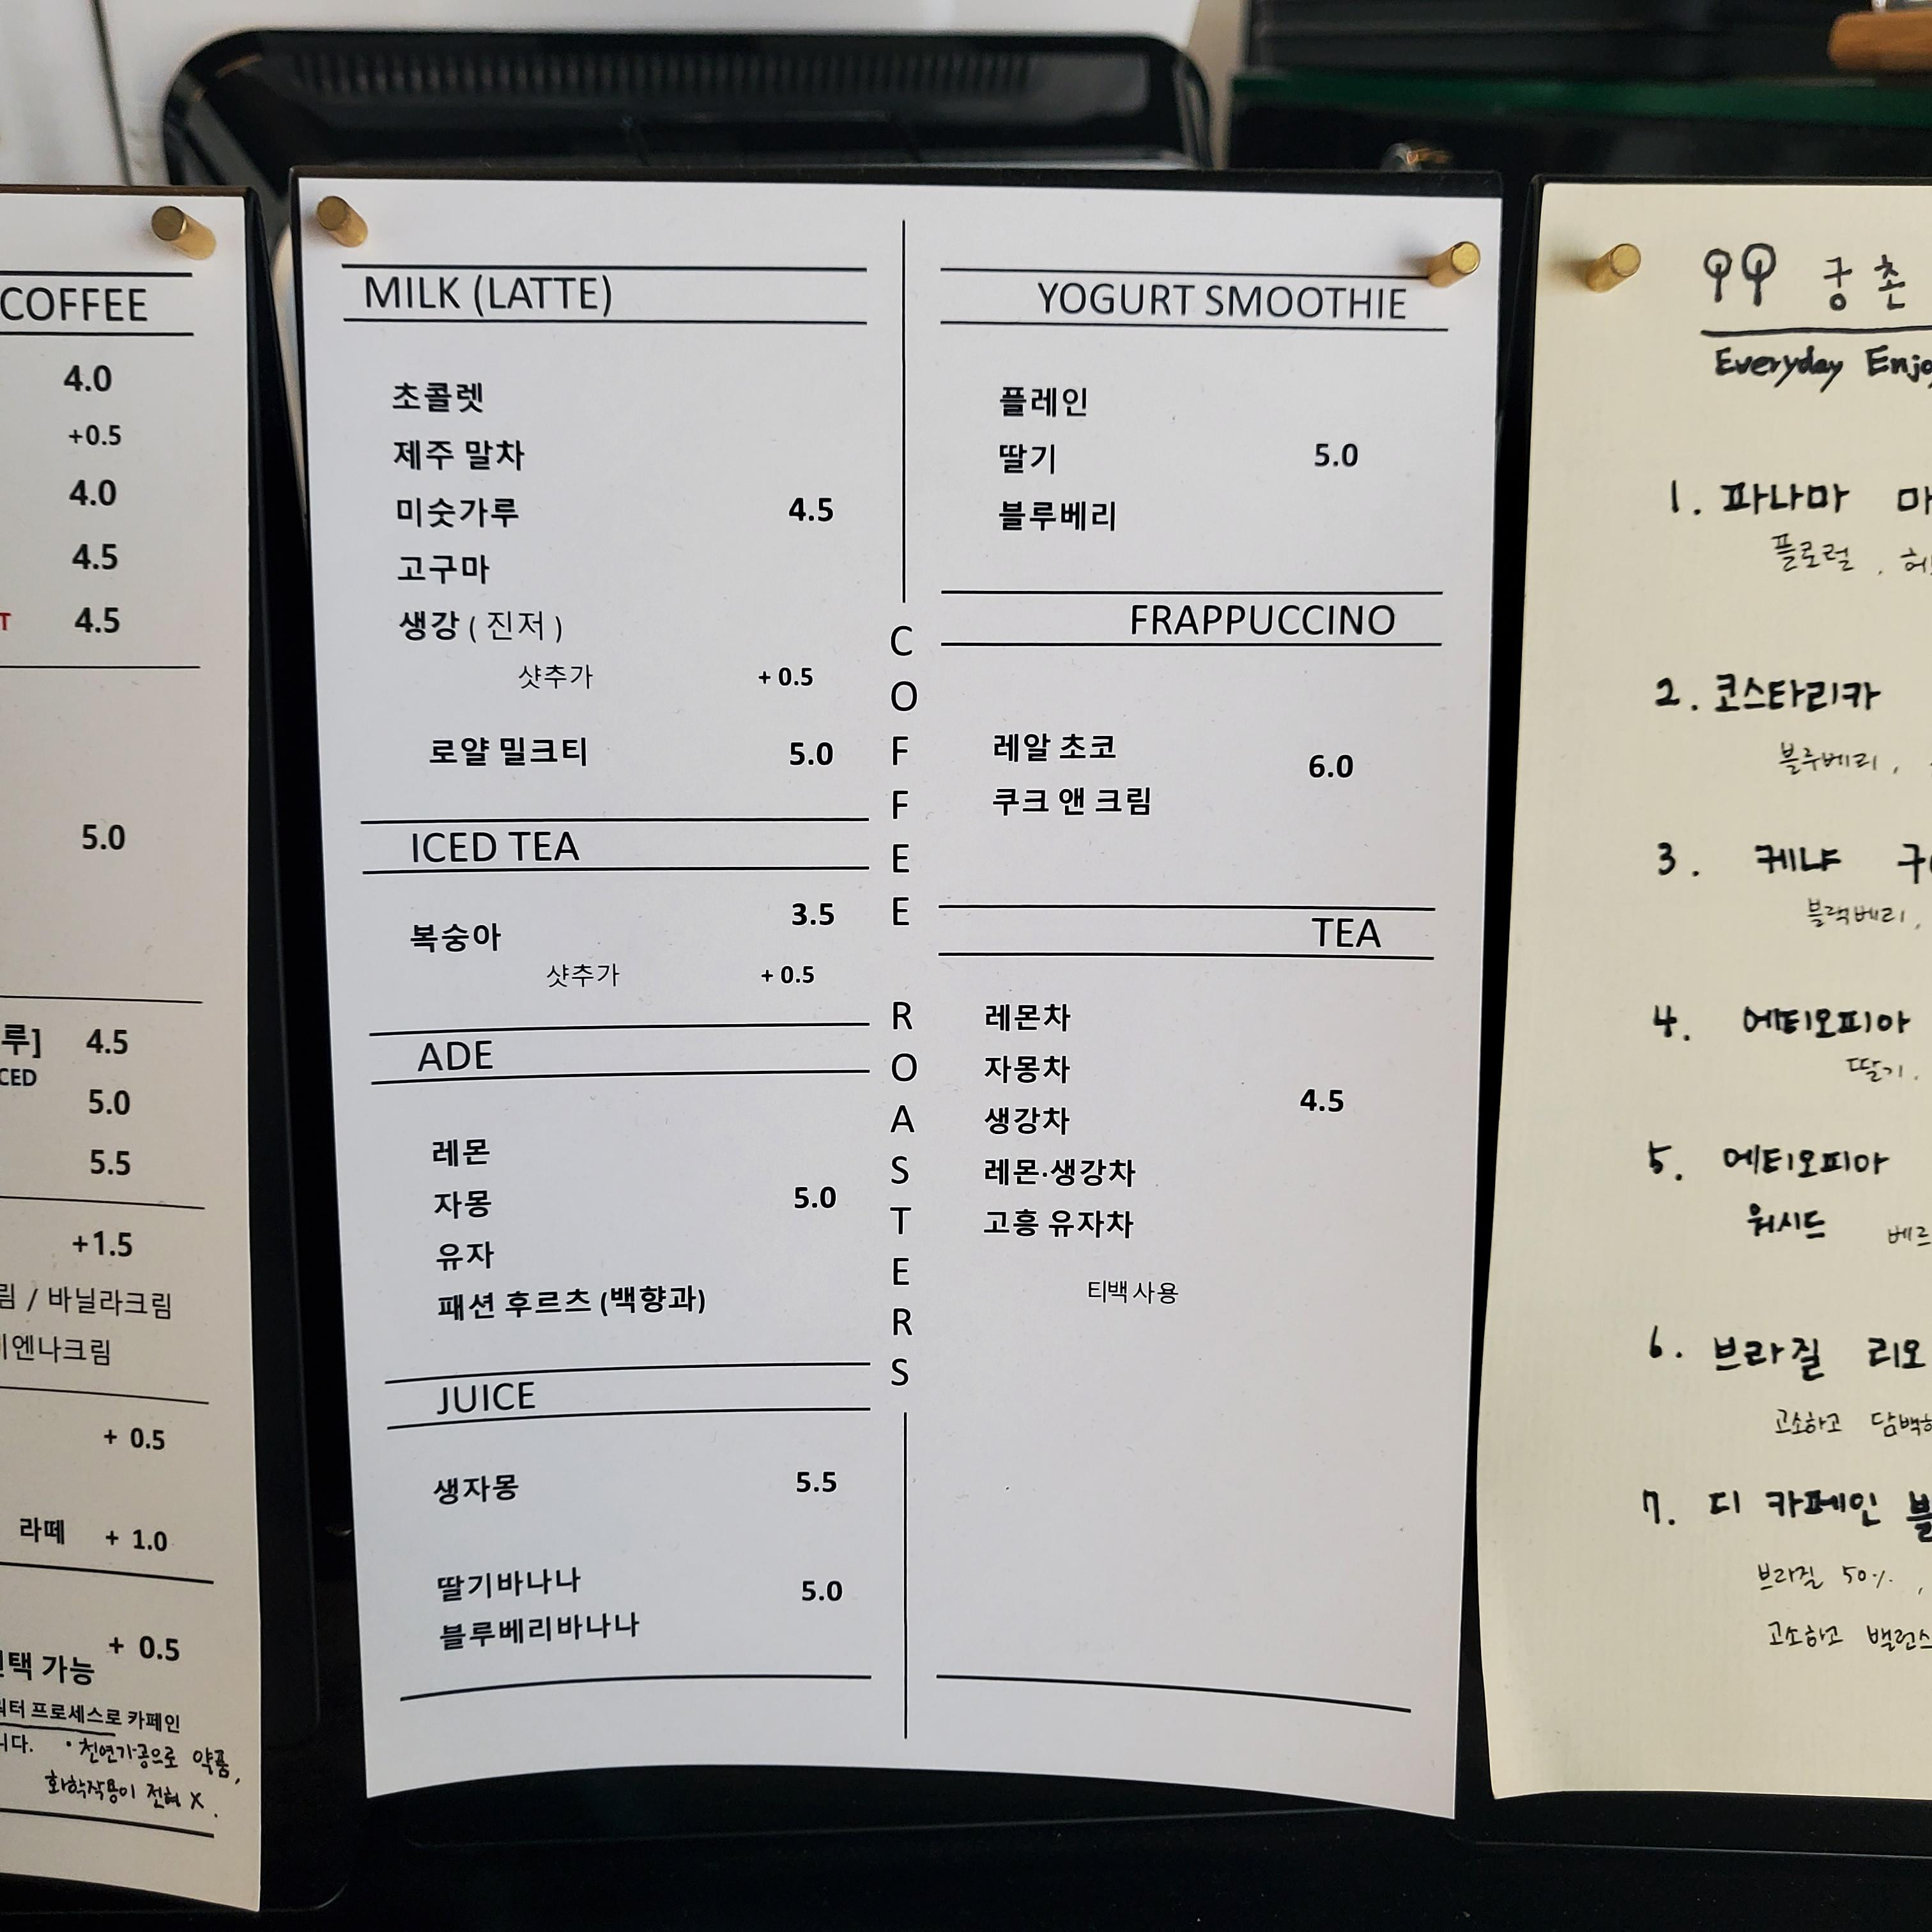 COFFEE
4.0
+0.5
4.0
4.5
T 4.5
5.0
루] 4.5
CED
5.0
5.5
+1.5
림 / 바닐라크림
엔나크림
+ 0.5
라떼 + 1.0
+ 0.5
택 가능
워터 프로세스로 카페인
니다. • 천연가공으로 약품,
화학작용이 전혀 X.
MILK (LATTE)
초콜렛
제주 말차
미숫가루 4.5
고구마
생강 ( 진저 )
샷추가 + 0.5
로얄 밀크티 5.0
ICED TEA
복숭아 3.5
샷추가 + 0.5
ADE
레몬
자몽 5.0
유자
패션 후르츠 (백향과)
JUICE
생자몽 5.5
딸기바나나 5.0
블루베리바나나
COFFEE ROASTERS
YOGURT SMOOTHIE
플레인
딸기 5.0
블루베리
FRAPPUCCINO
레알 초코 6.0
쿠크 앤 크림
TEA
레몬차
자몽차
생강차 4.5
레몬·생강차
고흥 유자차
티백사용
궁촌
Everyday Enjo
1. 파나마 마
플로럴 , 허
2. 코스타리카
블루베리 ,
3. 케냐 구
블랙베리 ,
4. 에티오피아
딸기 .
5. 에티오피아
워시드 베르
6. 브라질 리오
고소하고 담백하
7. 디 카페인 블
브라질 50% ,
고소하고 밸런스